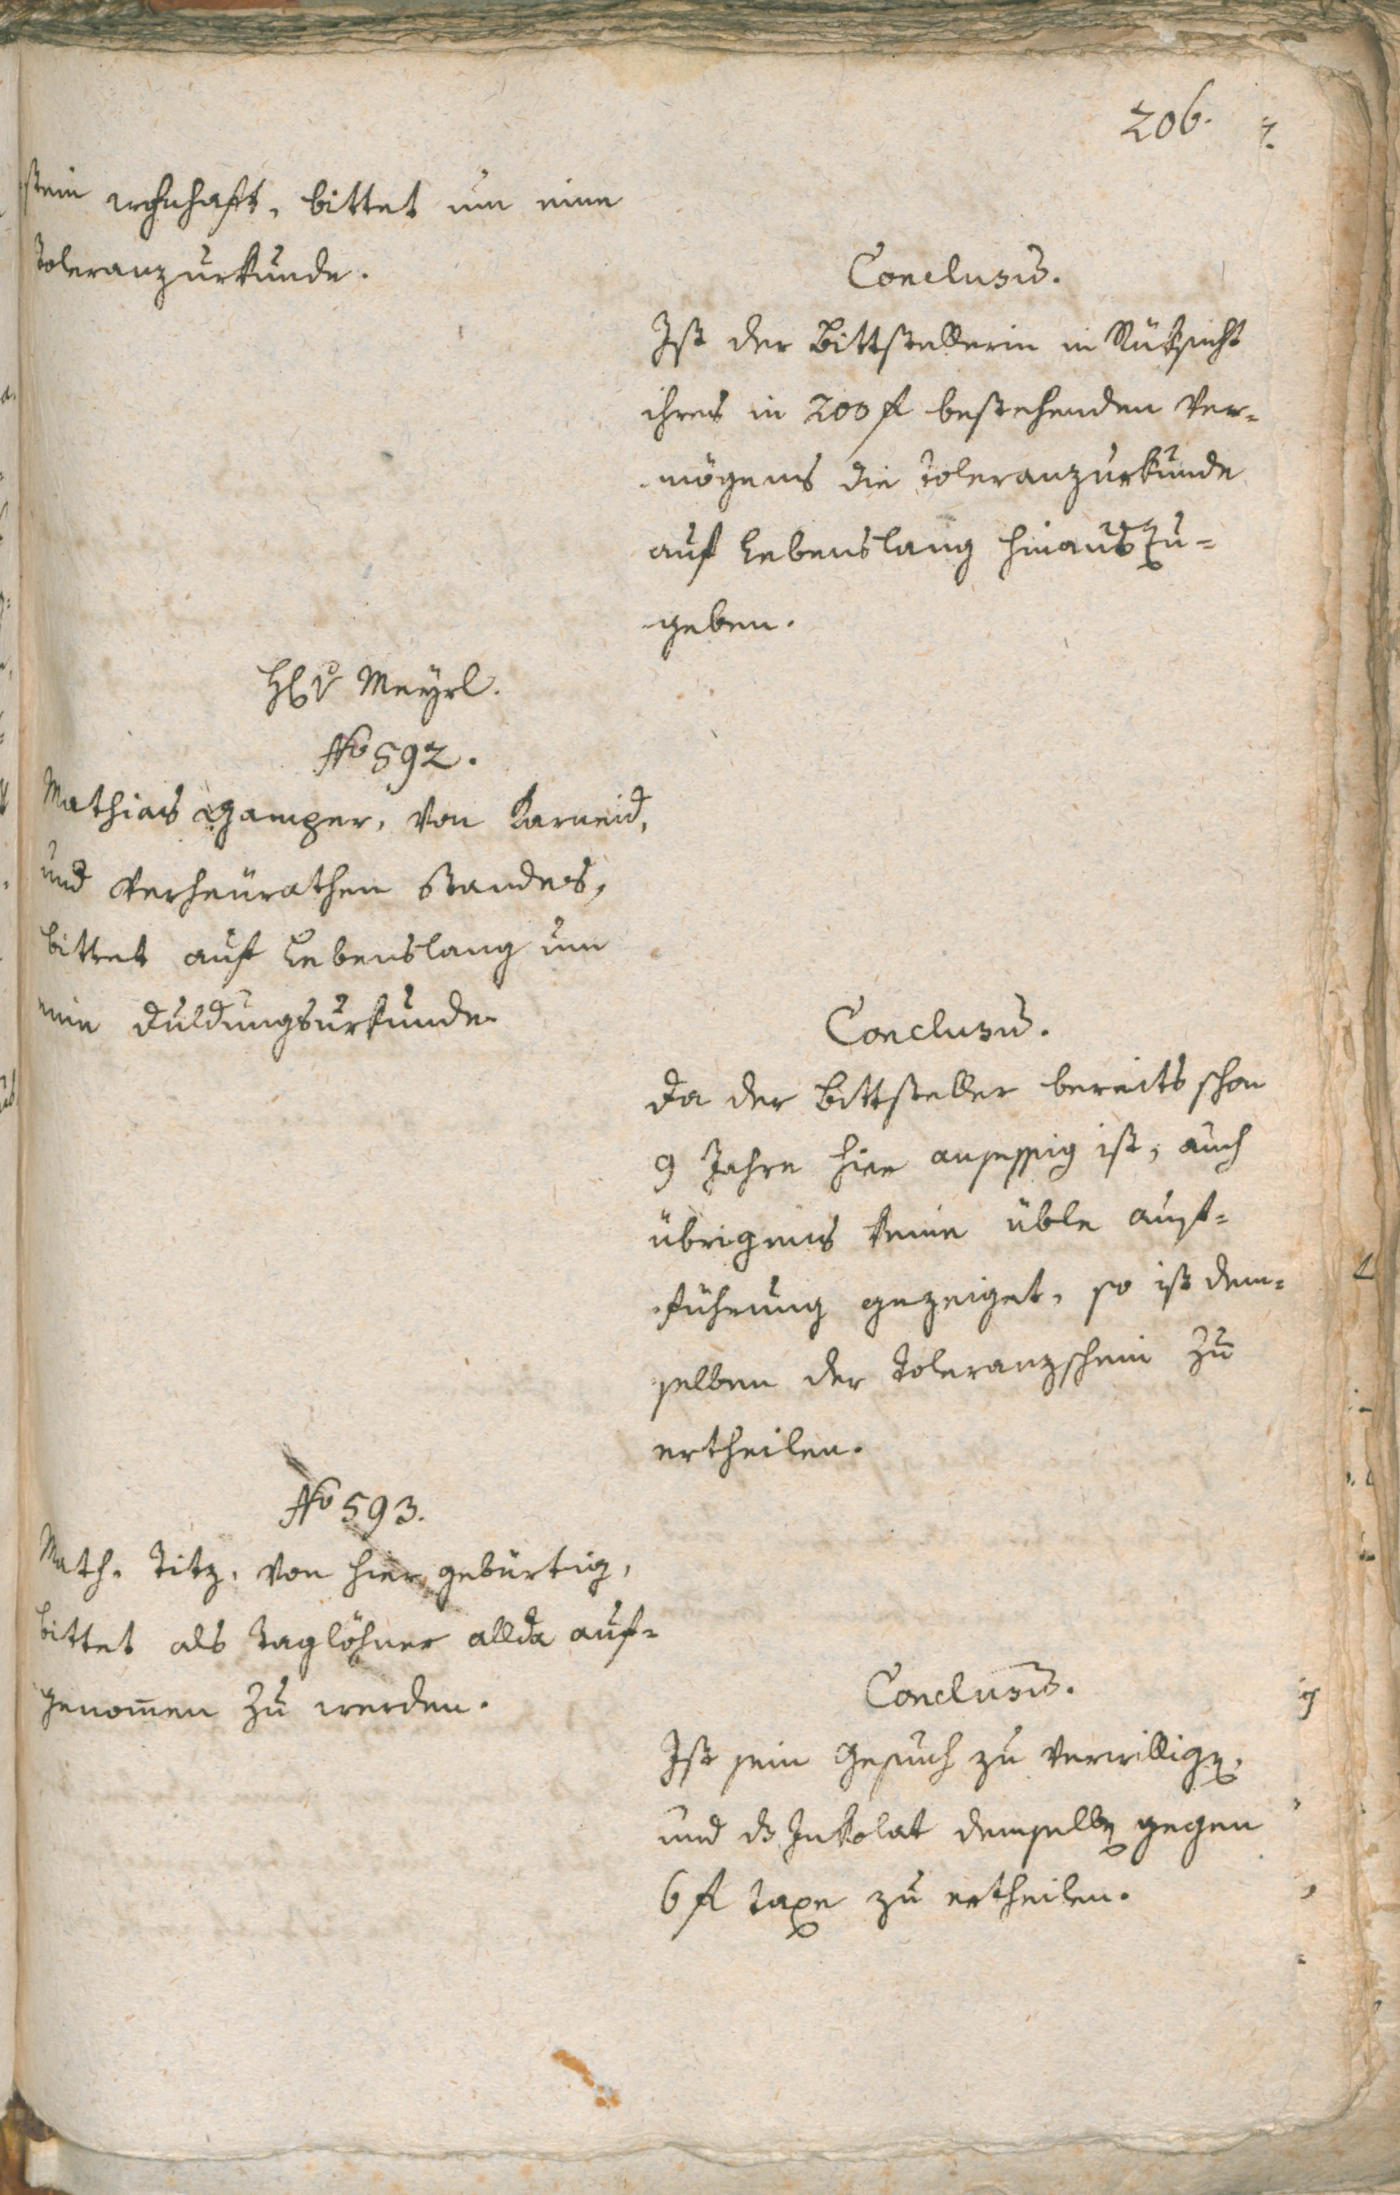 206.
stein wohnhaft, bittet um eine
Toleranzurkunde.
Conclusũ.
Ist der Bittstellerin in Rüksicht
ihres in 200 f bestehenden Ver=
mögens die Toleranzurkunde
auf Lebenslang hinauszu=
geben.
H. v Meyrl.
No 592.
Mathias Gamper, von Karneid,
und verheurathen Standes,
bittet auf Lebenslang um
eine Duldungsurkunde.
Conclusũ.
Da der Bittsteller bereits schon
9 Jahre hier ansessig ist, auch
übrigens keine üble auf=
führung gezeiget, so ist dem=
selben der Toleranzschein zu
ertheilen.
No 593.
Math. Titz, von hier gebürtig,
bittet als Taglöhner allda auf=
genom̃en zu werden.
Conclusũ.
Ist sein Gesuch zu verwilligen,
und ds Inkolat demselben gegen
6 f Taxe zu ertheilen.